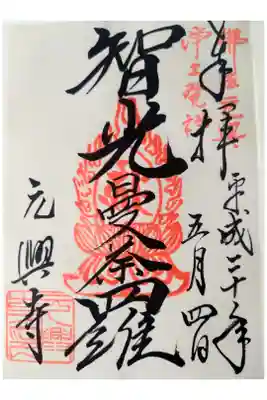 奉拝
平成二十年
五月四日
浄土発祥
智光曼荼羅
元興寺